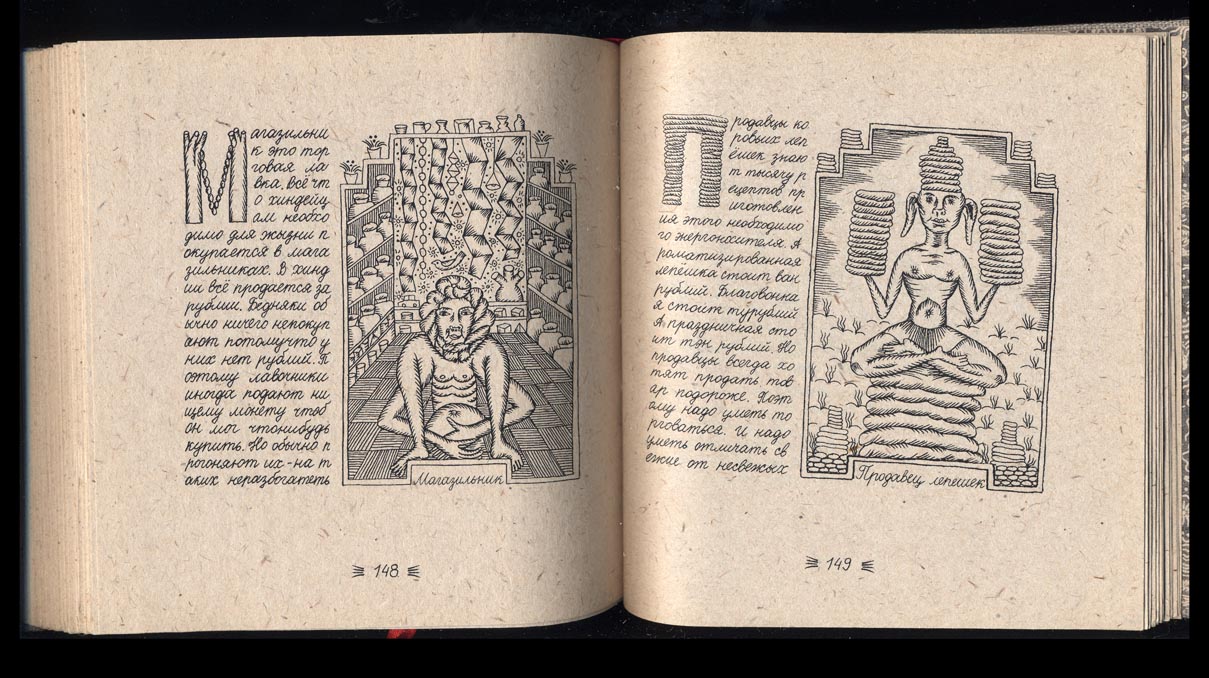 Магазильни
к это тор
говая ла
вка. Всё чт
о хиндейц
ам необхо
димо для жызни п
окупается в мага
зильниках. В хинд
ии всё продается за
рублии. Бедняки об
ычно ничего непокуп
ают потомучто у
них нет рублий. П
оэтому лавочники
иногда подают ни
щему монету чтоб
он мог чтонибудь
купить. Но обычно п
-рогоняют их - на т
аких неразбогатеть
Магазильник
148
Продавцы ко
ровьих леп
ёшек знаю
т тысячу р
ецептов пр
иготовлен
ия этого необходимо
го энергоносителя. А
роматизированная
лепёшка стоит ван
рублий. Благовонна
я стоит ту рублий
А праздничная сто
ит тэн рублий. Но
продавцы всегда хо
тят продать тов
ар подороже. Поэт
ому надо уметь то
рговаться. И надо
уметь отличать св
ежие от несвежых
Продавец лепешек
149